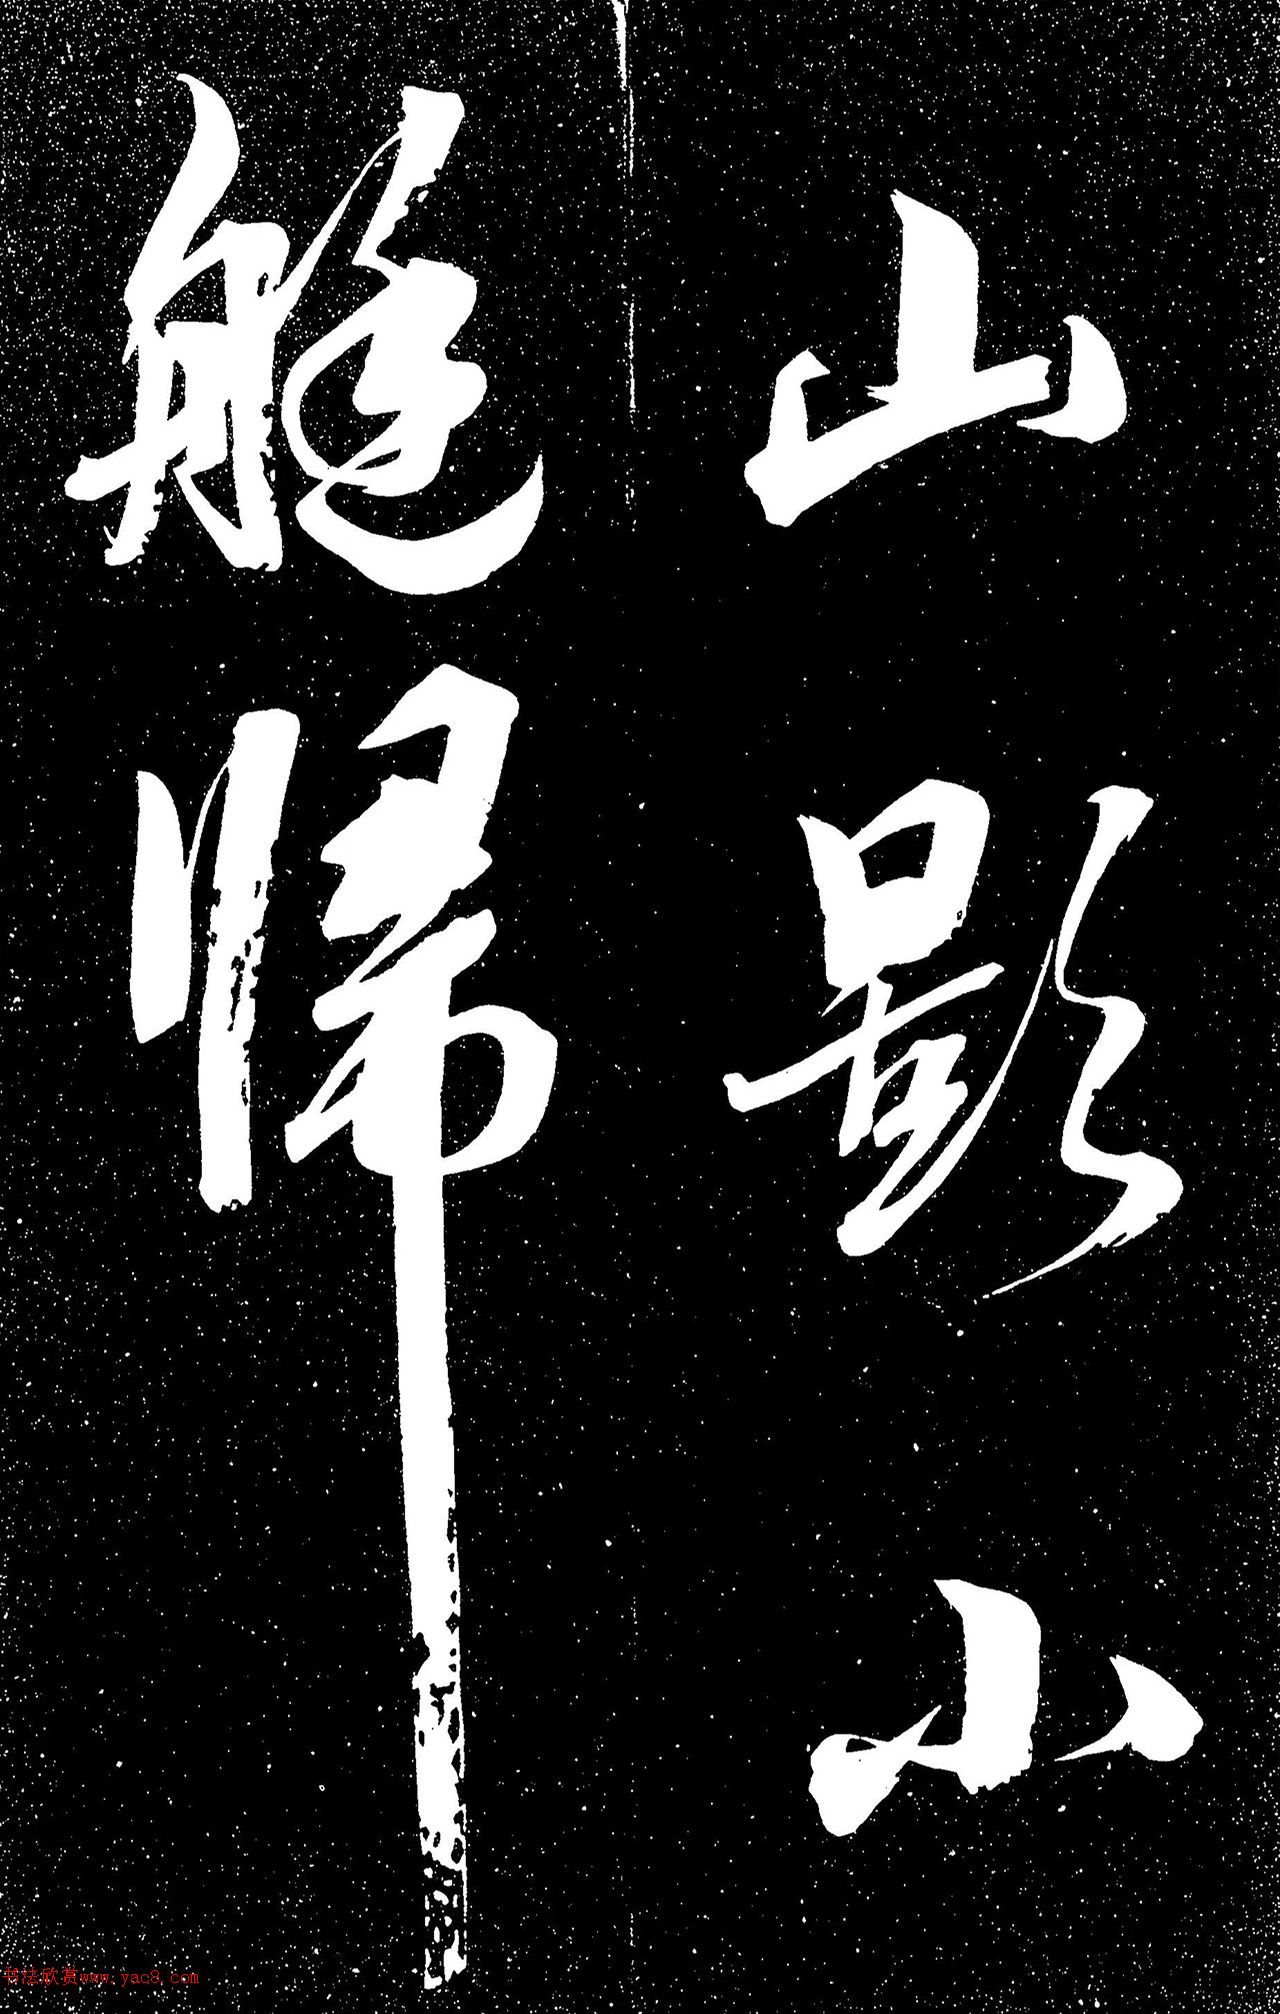 山影小
艇歸
书法欣赏www.yac8.com